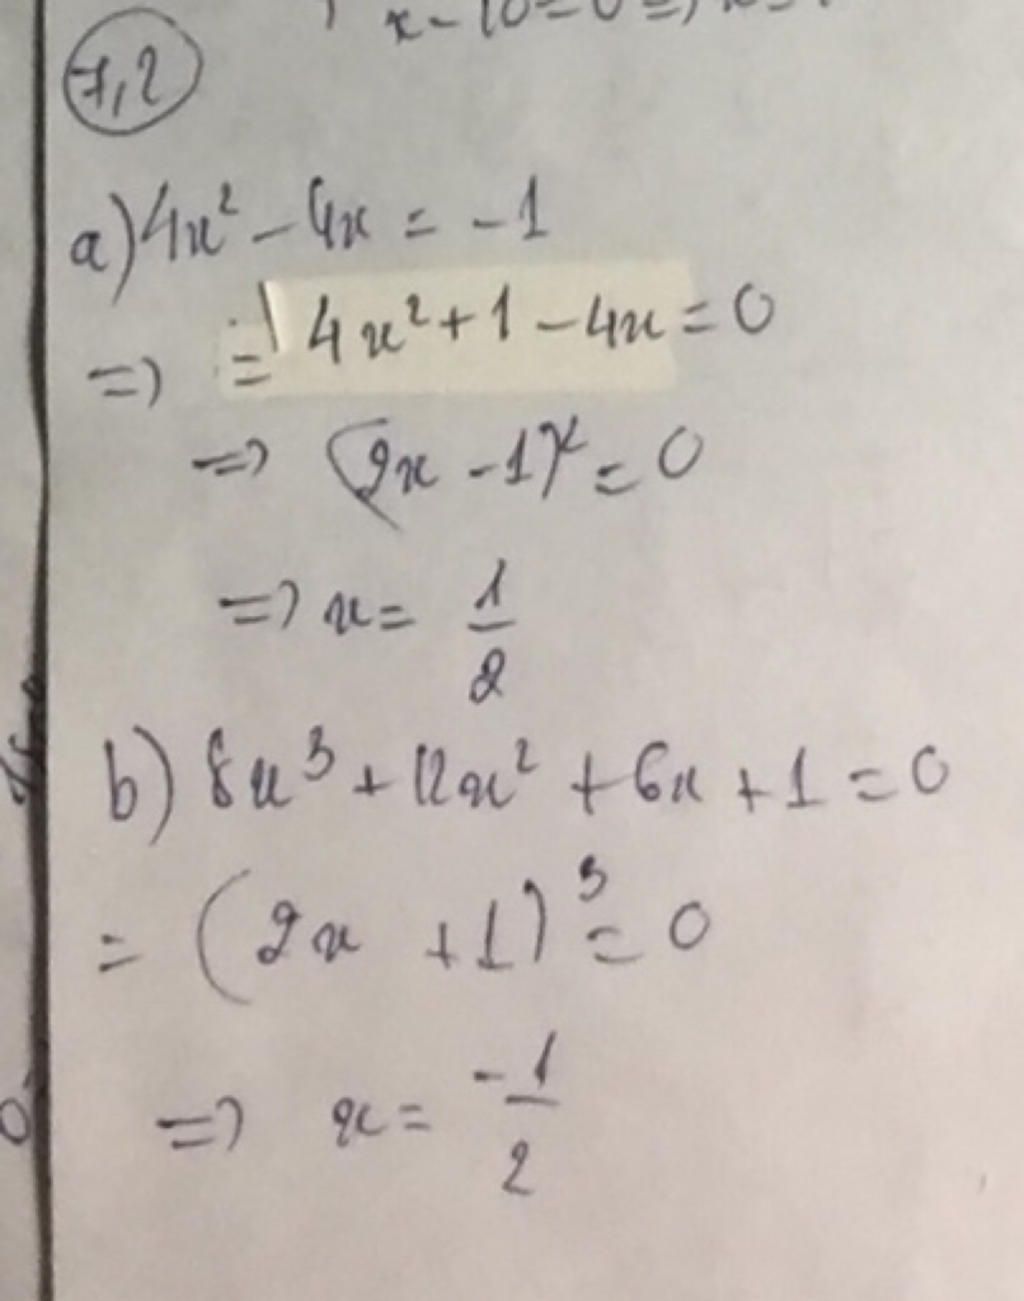 x - 10 = 0 =>
7,2
a) 4x² - 4x = -1
=> = 4x² + 1 - 4x = 0
=> (2x - 1)² = 0
=> x = 1/2
b) 8x³ + 12x² + 6x + 1 = 0
= (2x + 1)³ = 0
=> x = -1/2